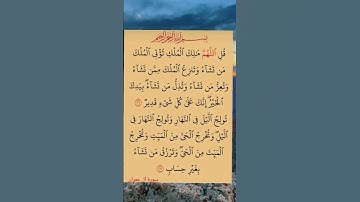 بسم الله الرحمن الرحيم
قُلِ ٱللَّهُمَّ مَٰلِكَ ٱلْمُلْكِ تُؤْتِى ٱلْمُلْكَ
مَن تَشَآءُ وَتَنزِعُ ٱلْمُلْكَ مِمَّن تَشَآءُ
وَتُعِزُّ مَن تَشَآءُ وَتُذِلُّ مَن تَشَآءُ ۖ بِيَدِكَ
ٱلْخَيْرُ ۖ إِنَّكَ عَلَىٰ كُلِّ شَىْءٍ قَدِيرٌ ۝٢٦
تُولِجُ ٱلَّيْلَ فِى ٱلنَّهَارِ وَتُولِجُ ٱلنَّهَارَ فِى
ٱلَّيْلِ ۖ وَتُخْرِجُ ٱلْحَىَّ مِنَ ٱلْمَيِّتِ وَتُخْرِجُ
ٱلْمَيِّتَ مِنَ ٱلْحَىِّ ۖ وَتَرْزُقُ مَن تَشَآءُ
بِغَيْرِ حِسَابٍ ۝٢٧
سورة آل عمران